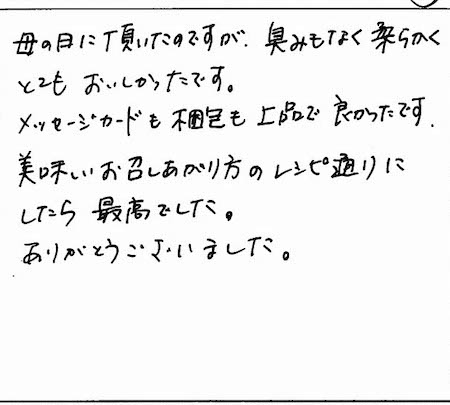 母の日に頂いたのですが、臭みもなく柔らかく
とてもおいしかったです。
メッセージカードも梱包も上品で良かったです.
美味しいお召しあがり方のレシピ通りに
したら最高でした。
ありがとうございました。